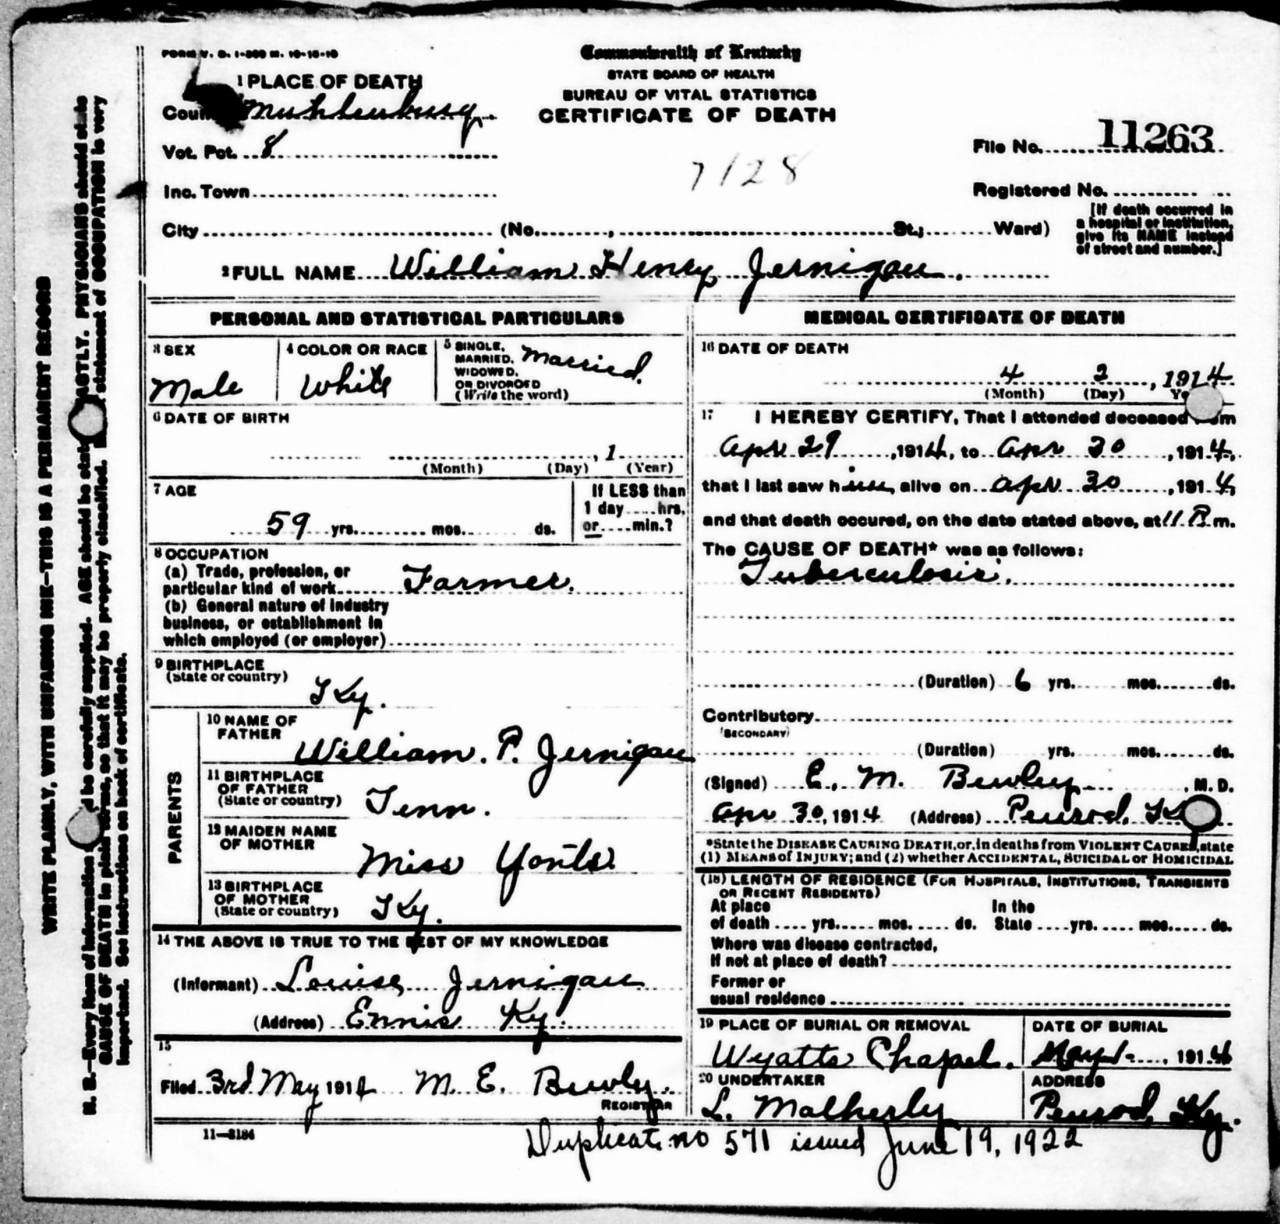 FORM V. S. 1-300 M. 10-15-10
Commonwealth of Kentucky
STATE BOARD OF HEALTH
BUREAU OF VITAL STATISTICS
CERTIFICATE OF DEATH
1 PLACE OF DEATH
County Muhlenburg.
Vot. Pct. 8
Inc. Town
City (No. , St.; Ward)
7128
File No. 11263
Registered No.
[If death occurred in
a hospital or institution,
give its NAME instead
of street and number.]
2 FULL NAME William Henry Jernigan.
PERSONAL AND STATISTICAL PARTICULARS
3 SEX
Male
4 COLOR OR RACE
White
5 SINGLE,
MARRIED,
WIDOWED,
OR DIVORCED
(Write the word)
Married.
6 DATE OF BIRTH
, 1
(Month) (Day) (Year)
7 AGE
59 yrs. mos. ds.
If LESS than
1 day.....hrs.
or.....min.?
8 OCCUPATION
(a) Trade, profession, or
particular kind of work Farmer.
(b) General nature of industry
business, or establishment in
which employed (or employer)
9 BIRTHPLACE
(State or country)
Ky.
PARENTS
10 NAME OF
FATHER
William. P. Jernigan
11 BIRTHPLACE
OF FATHER
(State or country)
Tenn.
12 MAIDEN NAME
OF MOTHER
Miss Yonts
13 BIRTHPLACE
OF MOTHER
(State or country)
Ky.
14 THE ABOVE IS TRUE TO THE BEST OF MY KNOWLEDGE
(Informant) Louise Jernigan
(Address) Ennis Ky.
15
Filed 3rd May 1914 M. E. Bewly.
REGISTRAR
11—3184
MEDICAL CERTIFICATE OF DEATH
16 DATE OF DEATH
4 2, 1914
(Month) (Day)
17 I HEREBY CERTIFY, That I attended deceased
Apr 29, 1914, to Apr 30, 1914,
that I last saw him alive on Apr 30, 1914,
and that death occured, on the date stated above, at 11 P. m.
The CAUSE OF DEATH* was as follows:
Tuberculosis.
(Duration) 6 yrs. mos. ds.
Contributory
(SECONDARY)
(Duration) yrs. mos. ds.
(Signed) E. M. Bewley, M. D.
Apr 30, 1914 (Address) Penrod, Ky
*State the DISEASE CAUSING DEATH, or, in deaths from VIOLENT CAUSES, state
(1) MEANS of INJURY; and (2) whether ACCIDENTAL, SUICIDAL or HOMICIDAL
(18) LENGTH OF RESIDENCE (FOR HOSPITALS, INSTITUTIONS, TRANSIENTS
OR RECENT RESIDENTS)
At place
of death .... yrs. .... mos. .... ds.
In the
State .... yrs. .... mos. .... ds.
Where was disease contracted,
If not at place of death?
Former or
usual residence
19 PLACE OF BURIAL OR REMOVAL
Wyatts Chapel.
DATE OF BURIAL
May 1, 1914
20 UNDERTAKER
L. Matherly
ADDRESS
Penrod, Ky.
Duplicat no 571 issued June 19, 1922
WRITE PLAINLY, WITH UNFADING INK—THIS IS A PERMANENT RECORD
N. B.—Every item of information be carefully supplied. AGE should be stated EXACTLY. PHYSICIANS should state
CAUSE OF DEATH in plain terms, so that it may be properly classified. statement of OCCUPATION is very
important. See instructions on back of certificate.